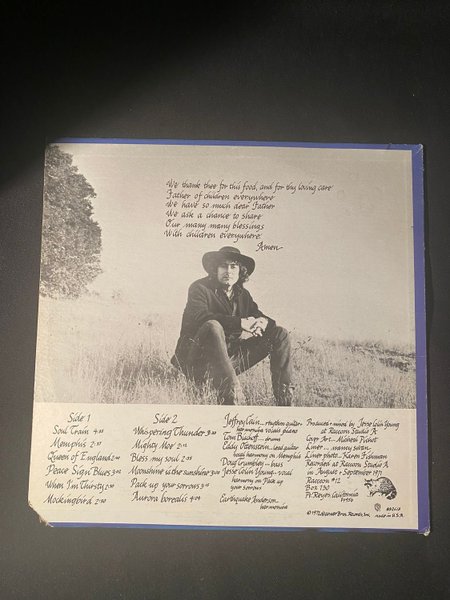 We thank thee for this food, and for thy loving care
Father of children everywhere
We have so much dear Father
We ask a chance to share
Our many many blessings
With children everywhere.
Amen
Side 1
Soul Train
Memphis
Queen of England
Peace Sign Blues
When I'm Thirsty
Mockingbird
Side 2
Whispering Thunder
Mighty Moe
Bless my soul
Moonshine is the sunshine
Pack up your sorrows
Aurora borealis
Jeffrey Cain — rhythm guitar
harmonica vocals piano
Tom Bischoff — drums
Eddy Ottenstein — lead guitar
vocal harmony on Memphis
Doug Grumphey — bass
Jesse Colin Young — vocal
harmony on Pack up
your sorrows
Earthquake Anderson
harmonica
Produced + mixed by Jesse Colin Young
at Raccoon Studio A
Cover Art — Michael Pichot
Liner — nanny swan
Liner photo — Karen Fishman
Recorded at Raccoon Studio A
in August + September 1971
Raccoon #12
Box 130
Pt. Reyes, California
© 1972 Warner Bros. Records, Inc.
made in U.S.A.